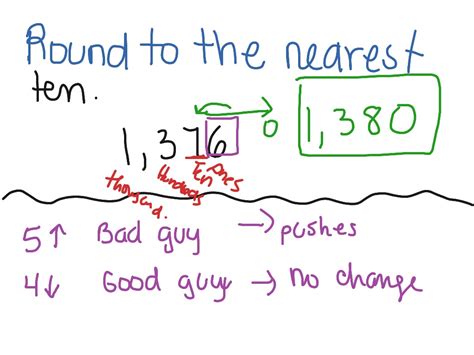 Round to the nearest
ten.
1,376
0
1,380
thousand.
Hundreds
Ten
Ones
5↑ Bad guy → pushes
4↓ Good guy → No change